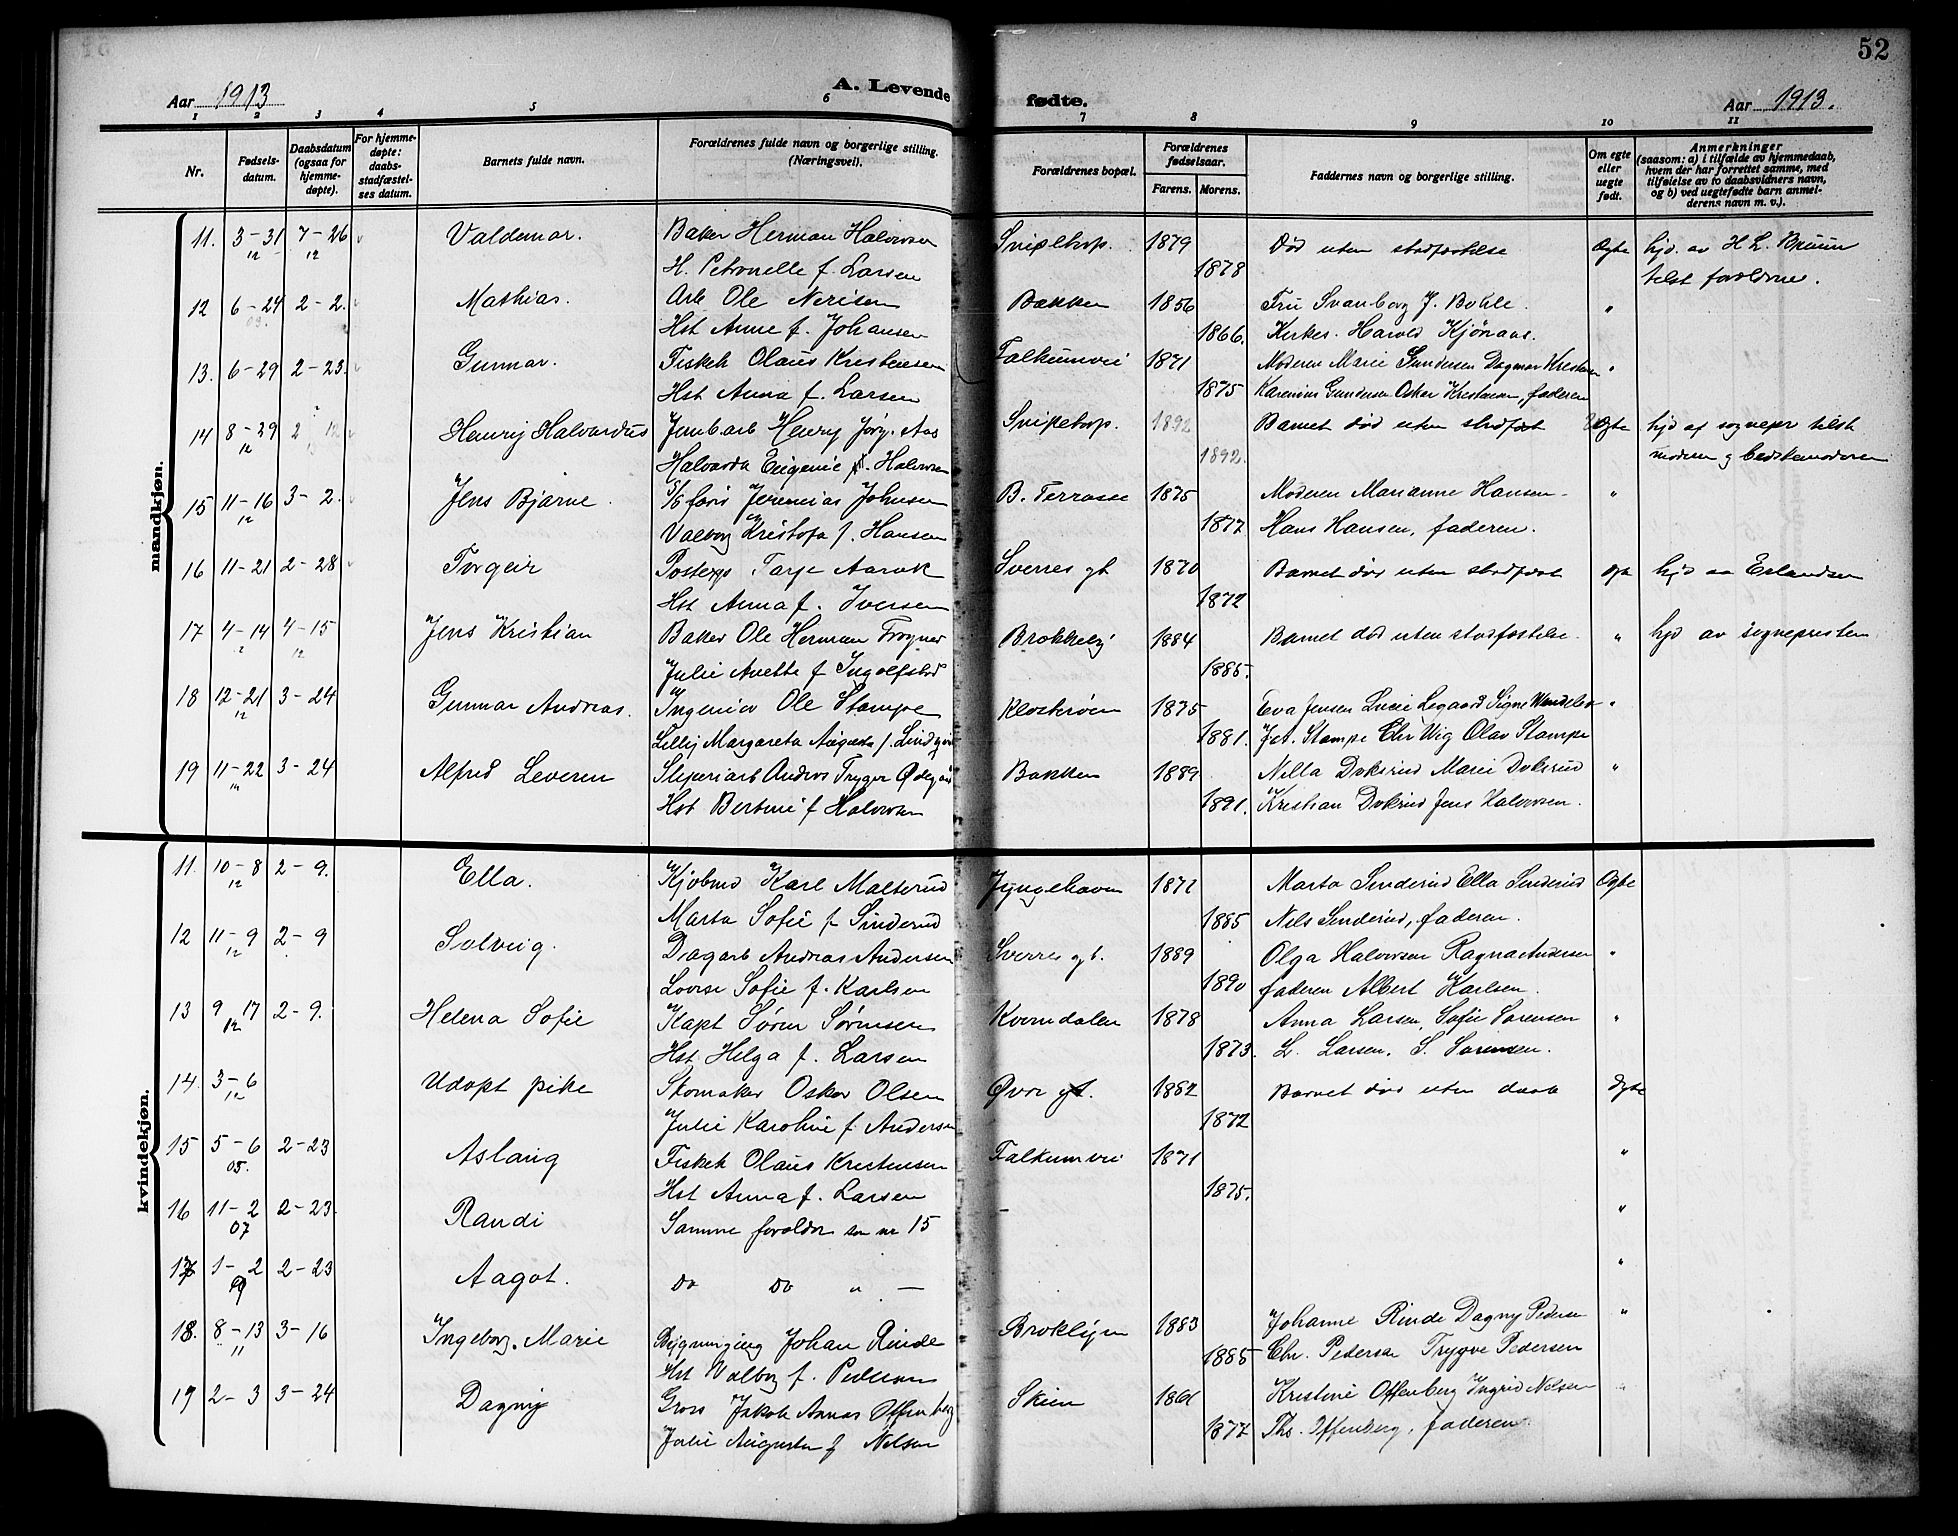 52
Aar 1913
A. Levende fødte.
Aar 1913.
1 2 3 4 5 6 7 8 9 10 11
Nr.
Fødsels-datum.
Daabsdatum (ogsaa for hjemme-døpte).
For hjemme-døpte: daabs-stadfæstel-ses datum.
Barnets fulde navn.
Forældrenes fulde navn og borgerlige stilling. (Næringsvei).
Forældrenes bopæl.
Forældrenes fødselsaar.
Farens. Morens.
Faddernes navn og borgerlige stilling.
Om egte eller uegte født.
Anmerkninger
(saasom: a) i tilfælde av hjemmedaab, hvem der har forrettet samme, med tilføielse av to daabsvidners navn, og b) ved uegtefødte barn anmel-derens navn m. v.).
mandkjøn.
11. 3-31/12 7-26/12 Valdemar. Baker Herman Halvorsen Snipetorp. 1879 Død uten stadfæstelse Egte hjd. av H L. Bruun
H. Petronelle f. Larsen 1878 tilst forældrene.
12 6-24/09. 2-2. Mathias. Arb Ole Nerisen Bakken 1856 Fru Svanborg J. Bøhle. "
Hst Anne f. Johansen 1866. Kirkes. Harold Kjönaas.
13. 6-29 2-23. Gunnar. Fiskeh Olaus Kristensen Falkumvei 1871 Moderen Marie Gundersen Dagmar Kristensen "
Hst Anna f. Larsen 1875 Karenius Gundersen Oskar Kristensen, faderen
14 8-29/12 2 Henry Halvardus Jernb.arb Henry Jörg. Aas Snipetorp. 1892 Barnet död uten stadfæst Uegte hjd af sognepr tilst
Halvarda Eugenie Halvorsen 1892. modern og bedstemoderen
15 11-16/12 3-2. Jens Bjarne. Jeremias Johnsen B. Terrasse 1875 Moderen Marianne Hansen. "
Valborg Kristofa f. Hansen 1877 Hans Hansen, faderen.
16 11-21 2-28 Torgeir Tarje Aarak Sverres gt 1870 Barnet död uten stadfæst hjd av Erlandsen
Hst Anna f. Iversen 1872
17 4-14 4-15/12 Jens Kristian Baker Ole Herman Trogner 1884 Barnet död uten stadfæstelse. " hjd av sognepresten
Julie Anette f 1885.
18 12-21/12 3-24 Gunnar Andreas. Ingeniør Ole Stampe Klosterøen 1875 Eva Jensen Lucie Signe "
Lilly Margareta Augusta f. 1881. Stampe Chr Wig Olav Stampe
19 11-22 3-24 Alfred Leveren Sliperiarb Andreas Trygger Bakken 1889 Nella Dokrud Marie Dokrud "
Hst Bertine f Halvorsen 1891. Kristian Dokrud Jens Halvorsen.
kvindekjøn.
11. 10-8/12 2-9. Ella. Kjøbmd Karl Malterud 1871 Marta Sinderud Ella Sinderud Egte
Marta Sofie f Sinderud 1885 Nils Sinderud, faderen.
12 11-9/12 2-9 Solveig. Dagarb Andreas Andersen Sverres gt. 1889 Olga Halvorsen Ragna Andersen "
Lovise Sofie f. Karlsen 1890 faderen Albert Karlsen.
13 9 17/12 2-9. Helena Sofie Kapt Sören Sörensen Kverndalen 1878 Anna Larsen, Sofie Sorensen "
Hst Helga f. Larsen 1873. L. Larsen. S. Sorensen.
14. 3-6/12 Udöpt pike Skomaker Oskar Olsen Øvre gt. 1882 Barnet död uten daab Egte
Julie Karoline f. Andersen 1872
15 5-6/05. 2-23 Aslaug Fiskeh Olaus Kristensen Falkumvei 1871 "
Hst Anna f. Larsen 1875.
16 11-2/07 2-23. Randi Samme foreldre som nr 15 - "
17 1-2/09 2-23 Aagot. Do Do " — "
18. 8-13/11 3-16 Ingeborg Marie Johan Rinde 1883 Johanne Rinde Dagny Pedersen "
Hst Valborg f. Pedersen 1885 Chr. Pedersen Trygve Pedersen
19 2-3 3-24 Dagny Gross Jakob Offenberg Skien 1861 Kristine Offenberg Ingrid Nelsen "
Julie Augusta f Nelsen 1877 Ths. Offenberg, faderen